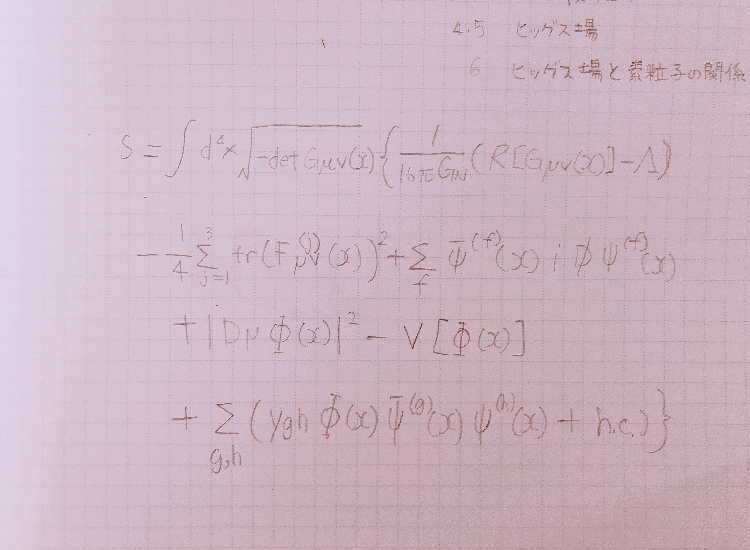 4.5 ヒッグス場
6 ヒッグス場と素粒子の関係
S = ∫ d⁴x √(-det Gμν(x)) { 1/(16πG_N) (R[Gμν(x)] - Λ)
- 1/4 Σ_{j=1}^{3} tr(F_{μν}^{(j)}(x))² + Σ_f Ψ̄^{(f)}(x) i D̸ Ψ^{(f)}(x)
+ |Dμ Φ(x)|² - V[Φ(x)]
+ Σ_{g,h} (y_{gh} Φ(x) Ψ̄^{(g)}(x) Ψ^{(h)}(x) + h.c.) }